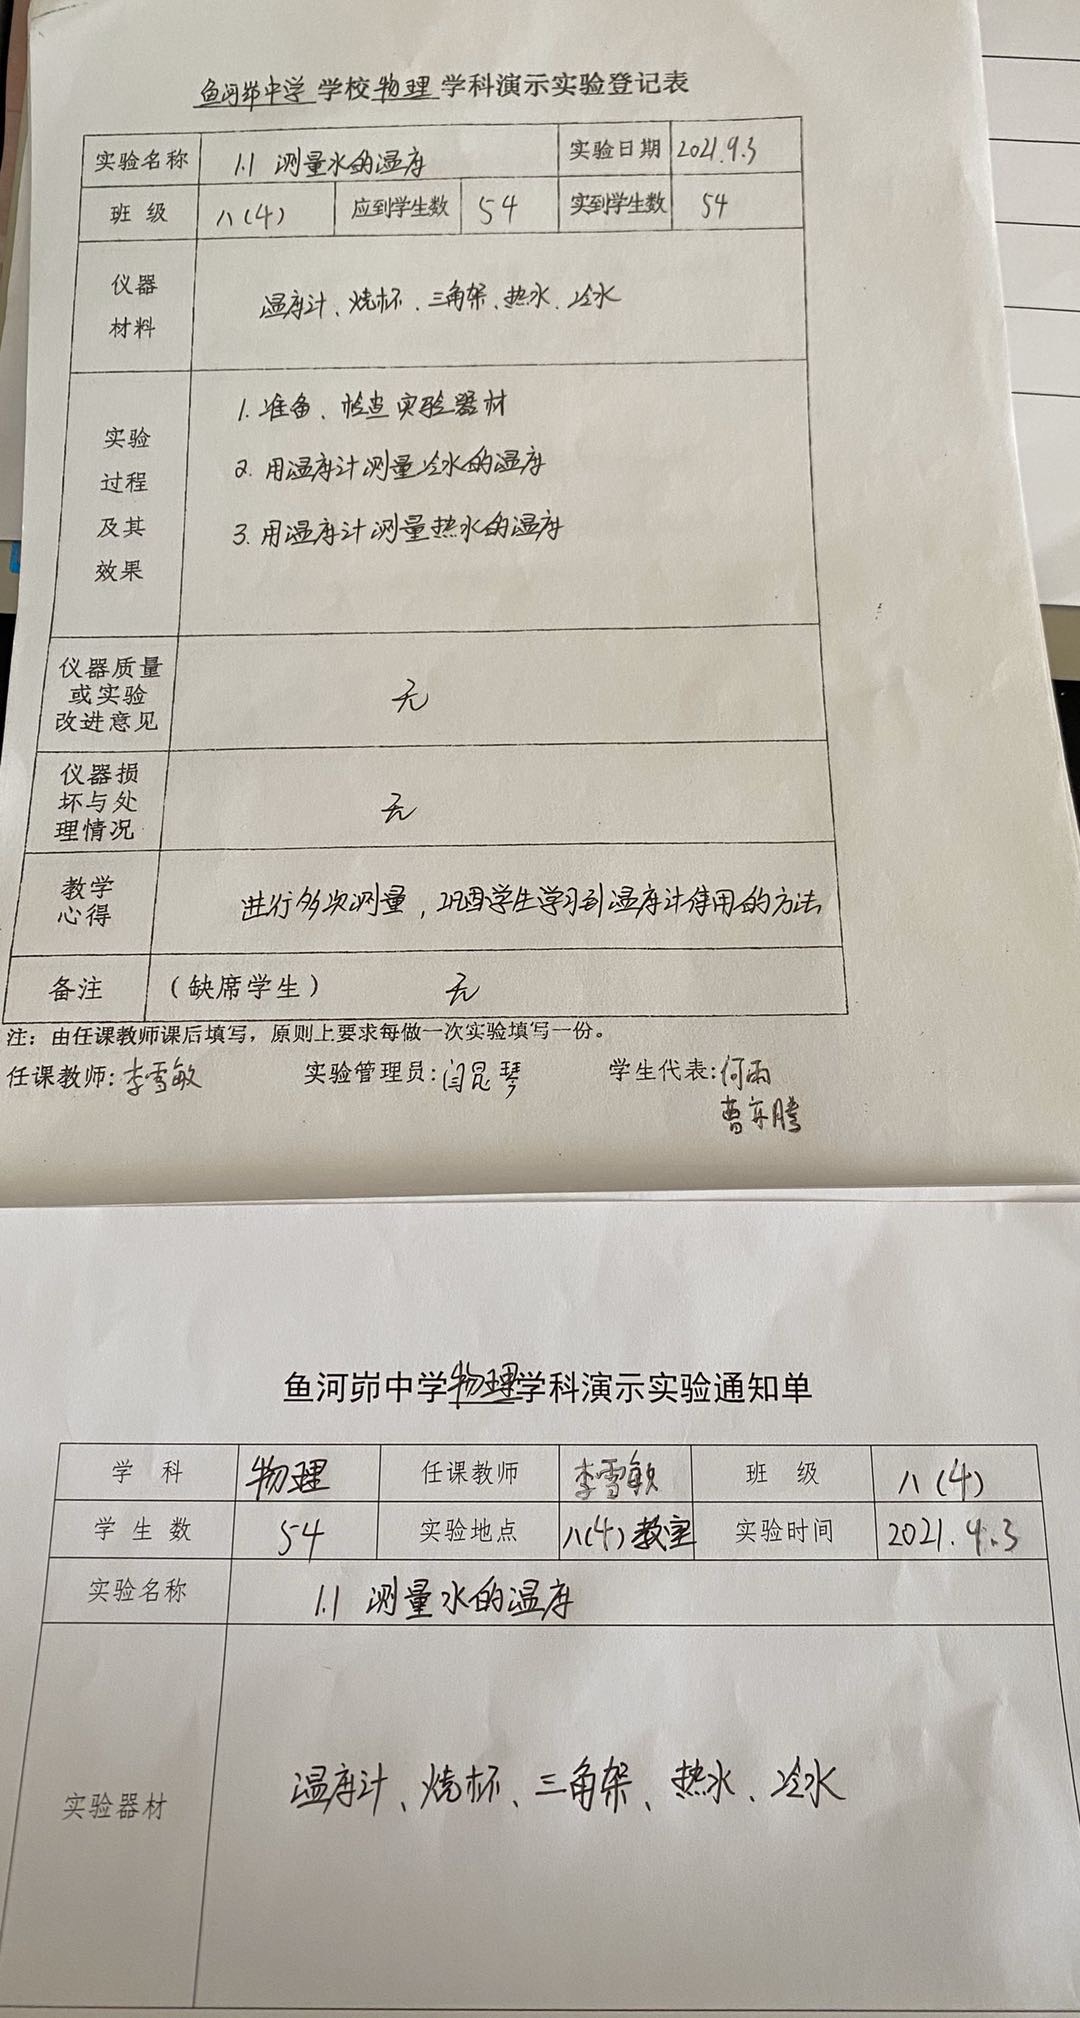 鱼河峁中学 学校 物理 学科演示实验登记表
实验名称 1.1 测量水的温度 实验日期 2021.9.3
班 级 八(4) 应到学生数 54 实到学生数 54
仪器
材料
温度计、烧杯、三角架、热水、冷水
实验
过程
及其
效果
1. 准备、检查实验器材
2. 用温度计测量冷水的温度
3. 用温度计测量热水的温度
仪器质量
或实验
改进意见
无
仪器损
坏与处
理情况
无
教学
心得
进行多次测量，让学生学习到温度计使用的方法
备注 (缺席学生) 无
注：由任课教师课后填写，原则上要求每做一次实验填写一份。
任课教师：李雪敏 实验管理员：闫昆琴 学生代表：何雨
曹东腾
鱼河峁中学物理学科演示实验通知单
学 科 物理 任课教师 李雪敏 班 级 八(4)
学 生 数 54 实验地点 八(4)教室 实验时间 2021.9.3
实验名称 1.1 测量水的温度
实验器材 温度计、烧杯、三角架、热水、冷水